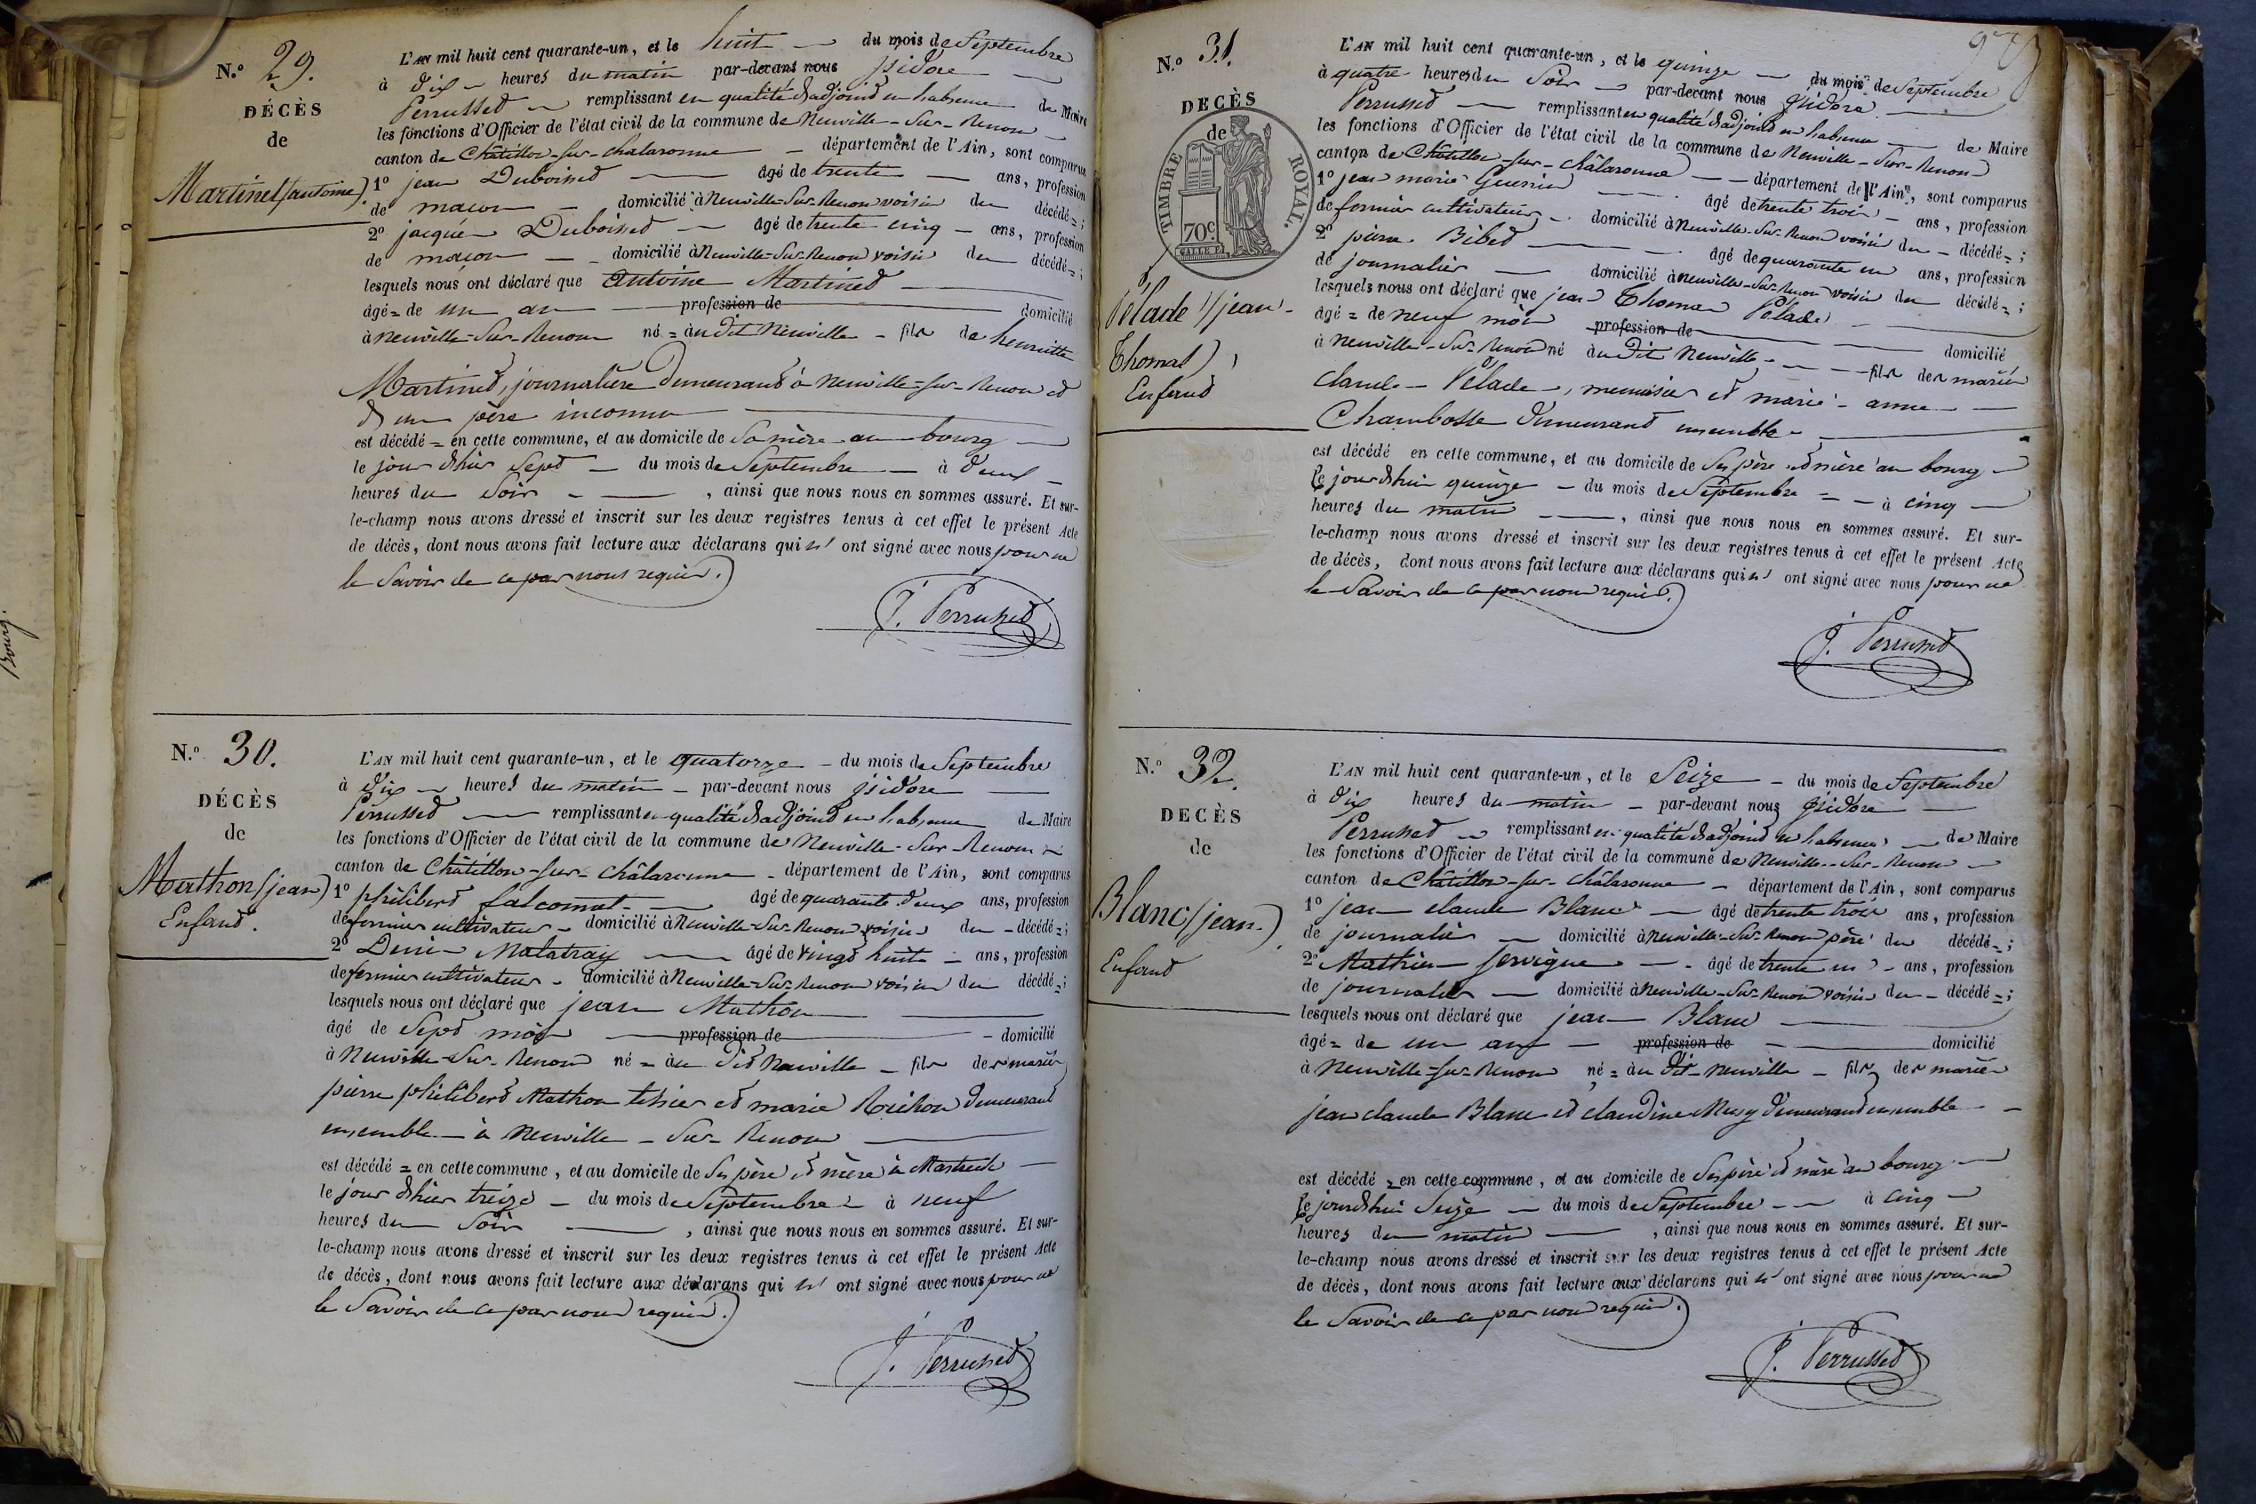 N.º 29.
DÉCÈS
de
Martinet (antoine).
L'AN mil huit cent quarante-un, et le huit — du mois de Septembre
à dix — heures du matin par-devant nous isidore —
Perrussed — remplissant en qualité d'adjoind en l'absence de Maire
les fonctions d'Officier de l'état civil de la commune de Neuville-Sur-Renom —
canton de Châtillon-sur-chalaronne — département de l'Ain, sont comparus
1º jean Duboised — âgé de trente — ans, profession
de maçon — domicilié à Neuville-Sur-Renom voisin du décédé = ;
2º jacques Duboised — âgé de trente cinq — ans, profession
de maçon — domicilié à Neuville-Sur-Renom voisin du décédé = ;
lesquels nous ont déclaré que antoine Martined —
âgé = de un an — profession de — domicilié
à neuville-Sur-Renom né = au dit Neuville — fils de henriette
Martined, journalière demeurand à Neuville-sur-Renom et
d'un père inconnu —
est décédé = en cette commune, et au domicile de Sa mère au bourg —
le jour d'hier Sept — du mois de Septembre — à deux —
heures du Soir — , ainsi que nous nous en sommes assuré. Et sur-
le-champ nous avons dressé et inscrit sur les deux registres tenus à cet effet le présent Acte
de décès, dont nous avons fait lecture aux déclarans qui n' ont signé avec nous pour ne
le Savoir de ce par nous requis.
J. Perrussed
N.º 30.
DÉCÈS
de
Mathon (jean)
Enfand.
L'AN mil huit cent quarante-un, et le quatorze — du mois de Septembre
à dix — heures du matin — par-devant nous isidore —
Perrussed — remplissant en qualité d'adjoind en l'absence de Maire
les fonctions d'Officier de l'état civil de la commune de Neuville-Sur-Renom —
canton de Châtillon-sur-châlaronne — département de l'Ain, sont comparus
1º philiberd falconnat — âgé de quarante deux ans, profession
de fermier cultivateur — domicilié à Neuville-Sur-Renom voisin du — décédé = ;
2º Denis Malatray — âgé de vingt huit — ans, profession
de fermier cultivateur — domicilié à Neuville-Sur-Renom voisin du décédé = ;
lesquels nous ont déclaré que jean Mathon —
âgé de Sept mois — profession de — domicilié
à Neuville-Sur-Renom né = au dit Neuville — fils des mariés
pierre philiberd Mathon tissier et marie Rochon demeurand
ensemble — à Neuville-Sur-Renom —
est décédé = en cette commune, et au domicile de Ses père et mère à —
le jour d'hier treize — du mois de Septembre — à neuf
heures du Soir — , ainsi que nous nous en sommes assuré. Et sur-
le-champ nous avons dressé et inscrit sur les deux registres tenus à cet effet le présent Acte
de décès, dont nous avons fait lecture aux déclarans qui n' ont signé avec nous pour ne
le Savoir de ce par nous requis.
J. Perrussed
N.º 31.
DECÈS
de
TIMBRE ROYAL.
70 c.
Pélade (jean-
Thomas)
Enfand
L'AN mil huit cent quarante-un, et le quinze — du mois de Septembre
à quatre heures du Soir — par-devant nous isidore
Perrussed — remplissant en qualité d'adjoind en l'absence — de Maire
les fonctions d'Officier de l'état civil de la commune de Neuville-Sur-Renom
canton de Châtillon-sur-châlaronne — département de l'Ain, sont comparus
1º jean marie Guerin — âgé de trente trois — ans, profession
de fermier cultivateur — domicilié à Neuville-Sur-Renom voisin du — décédé = ;
2º pierre Bibed — âgé de quarante un ans, profession
de journalier — domicilié à Neuville-Sur-Renom voisin du décédé = ;
lesquels nous ont déclaré que jean Thomas Pélade —
âgé = de neuf mois profession de — domicilié
à Neuville-Sur-Renom né au dit Neuville — fils des mariés
claude Pélade, menuisier et marie-anne —
Chambosse demeurand ensemble —
est décédé en cette commune, et au domicile de Ses père et mère au bourg —
le jourd'hui quinze — du mois de Septembre = — à cinq —
heures du matin — , ainsi que nous nous en sommes assuré. Et sur-
le-champ nous avons dressé et inscrit sur les deux registres tenus à cet effet le présent Acte
de décès, dont nous avons fait lecture aux déclarans qui n' ont signé avec nous pour ne
le Savoir de ce par nous requis.
J. Perrussed
N.º 32.
DECÈS
de
Blanc (jean)
Enfand
L'AN mil huit cent quarante-un, et le Seize — du mois de Septembre
à dix heures du matin — par-devant nous isidore —
Perrussed — remplissant en qualité d'adjoind en l'absence — de Maire
les fonctions d'Officier de l'état civil de la commune de Neuville-Sur-Renom —
canton de Châtillon-sur-châlaronne — département de l'Ain, sont comparus
1º jean claude Blanc — âgé de trente trois ans, profession
de journalier — domicilié à Neuville-Sur-Renom père du décédé = ;
2º Mathieu Servigne — âgé de trente un — ans, profession
de journalier — domicilié à Neuville-Sur-Renom voisin du — décédé = ;
lesquels nous ont déclaré que jean Blanc —
âgé = de un an — profession de — domicilié
à Neuville-sur-Renom né = au dit Neuville — fils des mariés
jean claude Blanc et claudine Messy demeurand ensemble —
est décédé = en cette commune, et au domicile de Ses père et mère au bourg —
le jourd'hui Seize — du mois de Septembre — à cinq —
heures du matin — , ainsi que nous nous en sommes assuré. Et sur-
le-champ nous avons dressé et inscrit sur les deux registres tenus à cet effet le présent Acte
de décès, dont nous avons fait lecture aux déclarans qui n' ont signé avec nous pour ne
le Savoir de ce par nous requis.
J. Perrussed
Bourg.